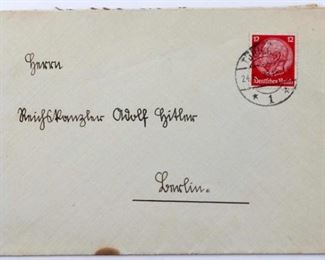 12 12
Deutsches Reich
24.
* 1 *
Herrn
Reichskanzler Adolf Hitler
Berlin.